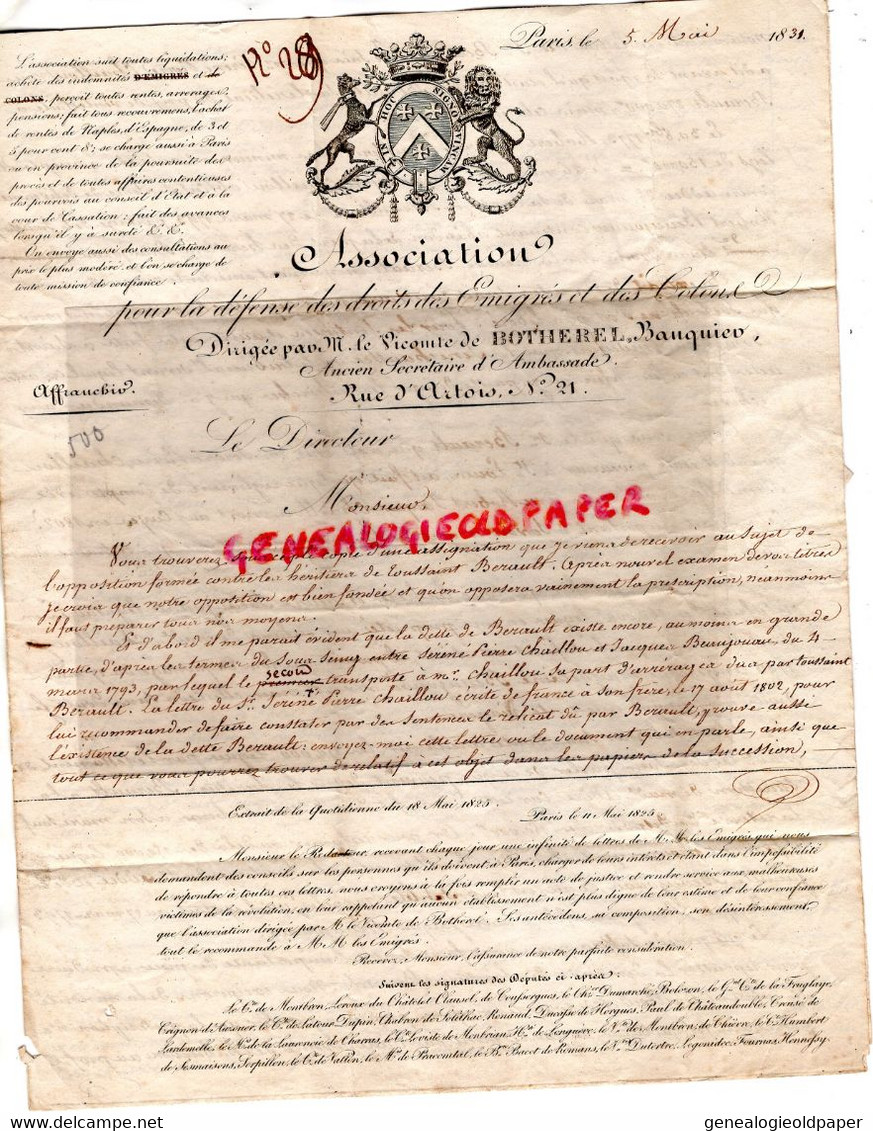 Paris, le 5. Mai 1831.
N° 28
L'association suit toutes liquidations;
achète des indemnités D'EMIGRÉS et de
COLONS; perçoit toutes rentes, arrerages,
pensions; fait tous recouvremens, l'achat
de rentes de Naples, d'Espagne, de 3 et
5 pour cent &ª; se charge aussi à Paris
ou en province de la poursuite des
procès et de toutes affaires contentieuses
des pourvois au conseil d'Etat et à la
cour de Cassation; fait des avances
lorsqu'il y à sureté &. &.
On envoye aussi des consultations au
prix le plus modéré et l'on se charge de
toute mission de confiance.
IN HOC SIGNO VINCAM
Association
pour la défense des droits des Emigrés et des Colons
Dirigée par M. le Vicomte de BOTHEREL, Banquier,
Ancien Secrétaire d'Ambassade.
Rue d'Artois, N.º 21.
Affranchir.
500
Le Directeur
Monsieur,
GENEALOGIEOLDPAPER
Vous trouverez copie d'une assignation que je viens de recevoir au sujet de
l'opposition formée contre les héritiers de Toussaint Berault. Après nouvel examen de vos titres
je crois que notre opposition est bien fondée et qu'on opposera vainement la prescription, néanmoins
il faut préparer tous nos moyens.
Et d'abord il me parait évident que la dette de Berault existe encore, au moins en grande
partie, d'après les termes du sous-seing entre Séréné Pierre Chaillou et Jacques Beaujouan, du 4
mars 1793, par lequel le premier second transporte à m.r Chaillou sa part d'arrérages dus par toussaint
Berault. La lettre du S.r Séréné Pierre Chaillou écrite de france à son frère, le 17 août 1802, pour
lui recommander de faire constater par des sentences le reliquat dû par Berault, prouve aussi
l'existence de la dette Berault: envoyez-moi cette lettre ou le document qui en parle, ainsi que
tout ce que vous pourrez trouver de relatif à cet objet dans les papiers de la succession,
Extrait de la Quotidienne du 18 Mai 1825. Paris le 11 Mai 1825
Monsieur le Rédacteur, recevant chaque jour une infinité de lettres de M. M. les Emigrés qui nous
demandent des conseils sur les personnes qu'ils doivent, à Paris, charger de leurs intérets et étant dans l'impossibilité
de répondre à toutes ces lettres, nous croyons à la fois remplir un acte de justice et rendre service aux malheureuses
victimes de la révolution, en leur rappelant qu'aucun établissement n'est plus digne de leur estime et de leur confiance
que l'association dirigée par M. le Vicomte de Botherel. Ses antécédens, sa composition, son désintéressement,
tout le recommande à M. M. les Emigrés.
Recevez, Monsieur, l'assurance de notre parfaite considération.
Suivent les signatures des Députés ci-après:
Le C.te de Montbron, Leroux du Châtelet, Clausel, de Coussergues, le Ch.er Dumarché, Boloxon, le G.al C.te de la Fruglaye,
Crignon d'Auzouer, le C.te de Latour Dupin, Chabron de Solilhac, Renaud, Ducasse de Horgues, Paul de Châteaudouble, Creuzé de
Lardemelle, le M.is de la Laurencie de Charras, le C.te Leviste de Montbrian, H.te de Longuève, le V.te de Montbron, de Chièvre, le C.te Humbert
de Sesmaisons, Serpillon, le C.te de Vallon, le M.is de Pracontal, le B.on Bacot de Romans, le V.te Dutertre, Legonidec, Fournas, Hennessy.
genealogieoldpaper